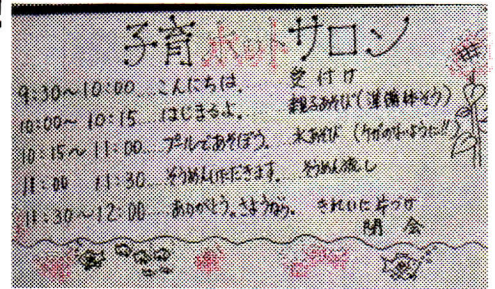 子育ホットサロン
9:30～10:00…こんにちは。 受付け
10:00～10:15…はじまるよ。…親子あそび(準備体そう)
10:15～11:00…プールであそぼう。 水あそび (ケガのないように!!
11:00 11:30…そうめんいただきます。 そうめん流し
11:30～12:00…ありがとう。さようなら。 きれいに片づけ
閉会